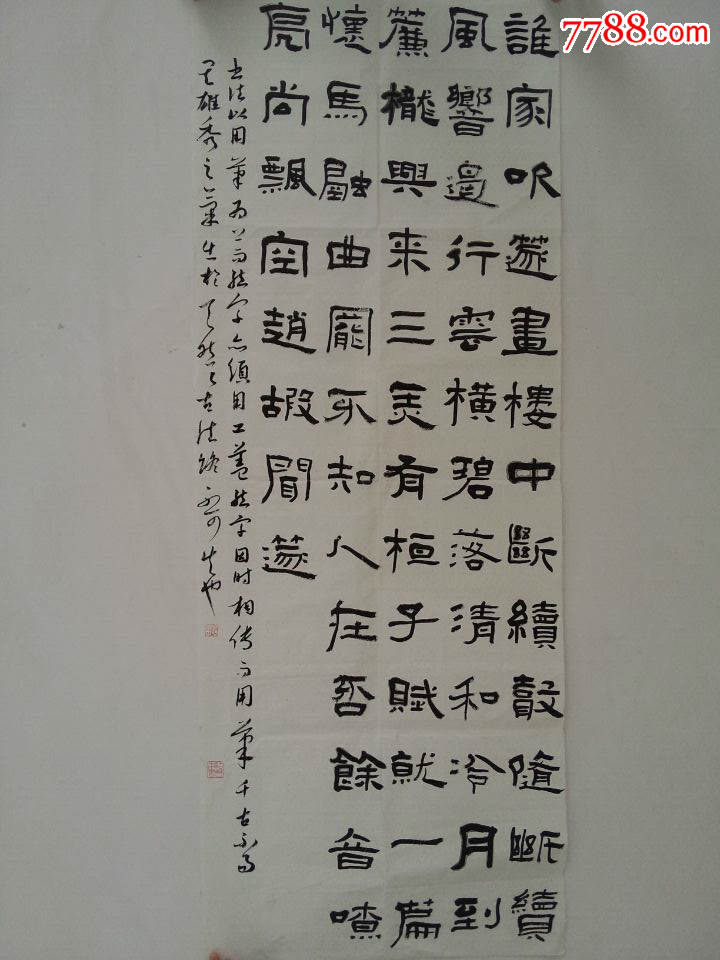 7788.com
誰家吹篴畫樓中斷續聲隨斷續
風響遏行雲橫碧落清和冷月到
簾櫳興来三弄有桓子賦就一篇
懷馬融曲罷不知人在否餘音嘹
亮尚飄空趙嘏聞篴
书法以用筆为上而结字亦須用工蓋结字因时相传而用筆千古不易
其雄秀之氣出於天然古法終不可失也